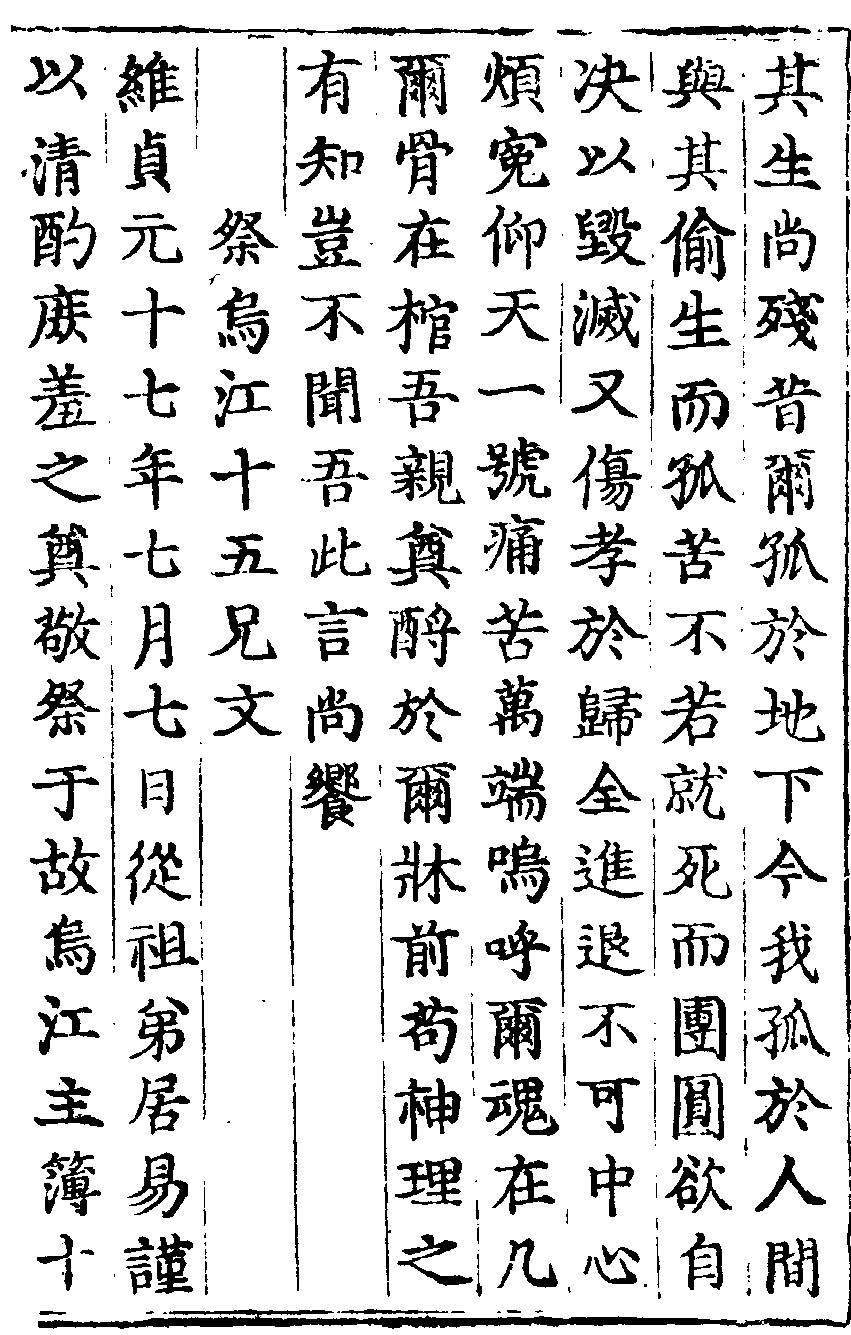 其生尚殘昔爾孤於地下今我孤於人間
與其偷生而孤苦不若就死而團圓欲自
决以毀滅又傷孝於歸全進退不可中心
煩寃仰天一號痛苦萬端嗚呼爾魂在几
爾骨在棺吾親奠酹於爾牀前苟神理之
有知豈不聞吾此言尚饗
祭烏江十五兄文
維貞元十七年七月七日從祖弟居易謹
以清酌庶羞之奠敬祭于故烏江主簿十